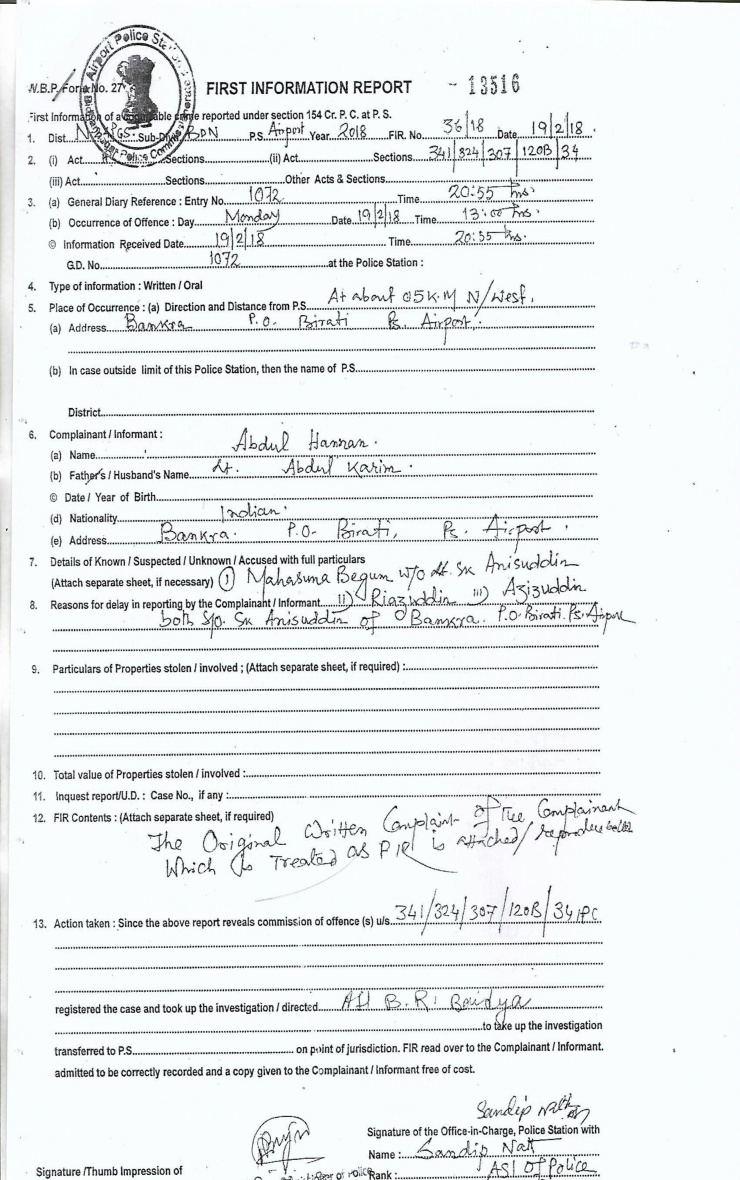 Airport Police Station
W.B.P. Form No. 27
FIRST INFORMATION REPORT - 13516
First Information of a cognizable crime reported under section 154 Cr. P. C. at P. S.
1. Dist. N. PGS. Sub-Divn BDN P.S. Airport Year 2018 FIR. No. 36/18 Date 19/2/18.
2. (i) Act Sections (ii) Act Sections 341/324/307/120B/34
(iii) Act Sections Other Acts & Sections
3. (a) General Diary Reference : Entry No. 1072 Time 20:55 hrs.
(b) Occurrence of Offence : Day Monday Date 19/2/18 Time 13:00 hrs.
© Information Received Date 19/2/18 Time 20:55 hrs.
G.D. No. 1072 at the Police Station :
4. Type of information : Written / Oral
5. Place of Occurrence : (a) Direction and Distance from P.S. At about 05 K.M N/West.
(a) Address Bankra P.O. Birati Ps. Airport.
(b) In case outside limit of this Police Station, then the name of P.S.
District
6. Complainant / Informant :
(a) Name Abdul Hannan.
(b) Father's / Husband's Name Lt. Abdul Karim.
© Date / Year of Birth
(d) Nationality Indian.
(e) Address Bankra. P.O- Birati, Ps. Airport.
7. Details of Known / Suspected / Unknown / Accused with full particulars
(Attach separate sheet, if necessary) (1) Mahasuna Begum w/o Lt. Sk Anisuddin
8. Reasons for delay in reporting by the Complainant / Informant II) Riazuddin III) Azizuddin
both S/o. Sk Anisuddin of Bankra. P.O. Birati. Ps. Airport
9. Particulars of Properties stolen / involved ; (Attach separate sheet, if required) :
10. Total value of Properties stolen / involved :
11. Inquest report/U.D. : Case No., if any :
12. FIR Contents : (Attach separate sheet, if required)
The Original Written Complaint of The Complainant
Which is Treated as FIR is attached/
13. Action taken : Since the above report reveals commission of offence (s) u/s. 341/324/307/120B/34 IPC
registered the case and took up the investigation / directed ASI B. R. Baidya
to take up the investigation
transferred to P.S. on point of jurisdiction. FIR read over to the Complainant / Informant.
admitted to be correctly recorded and a copy given to the Complainant / Informant free of cost.
Sandip Nath
Signature of the Office-in-Charge, Police Station with
Name : Sandip Nath
Signature /Thumb Impression of
Rank : ASI Of Police